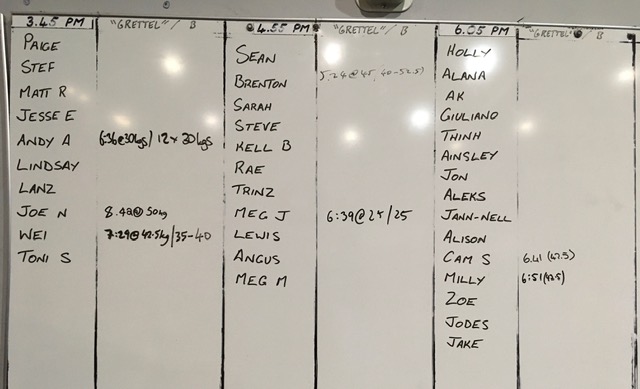 3.45 PM "GRETTEL" / B
PAIGE
STEF
MATT R
JESSE E
ANDY A 6:36@30kgs / 12 x 30kgs
LINDSAY
LANZ
JOE N 8.48@50kg
WEI 7:29@42.5kg/35-40
TONI S
4.55 PM "GRETTEL" / B
SEAN
BRENTON 5.24@45 (40-52.5)
SARAH
STEVE
KELL B
RAE
TRINZ
MEG J 6:39@25/25
LEWIS
ANGUS
MEG M
6.05 PM "GRETTEL" / B
HOLLY
ALANA
AK
GIULIANO
THINH
AINSLEY
JON
ALEKS
JANN-NELL
ALISON
CAM S 6.41 (42.5)
MILLY 6:51(42.5)
ZOE
JODES
JAKE